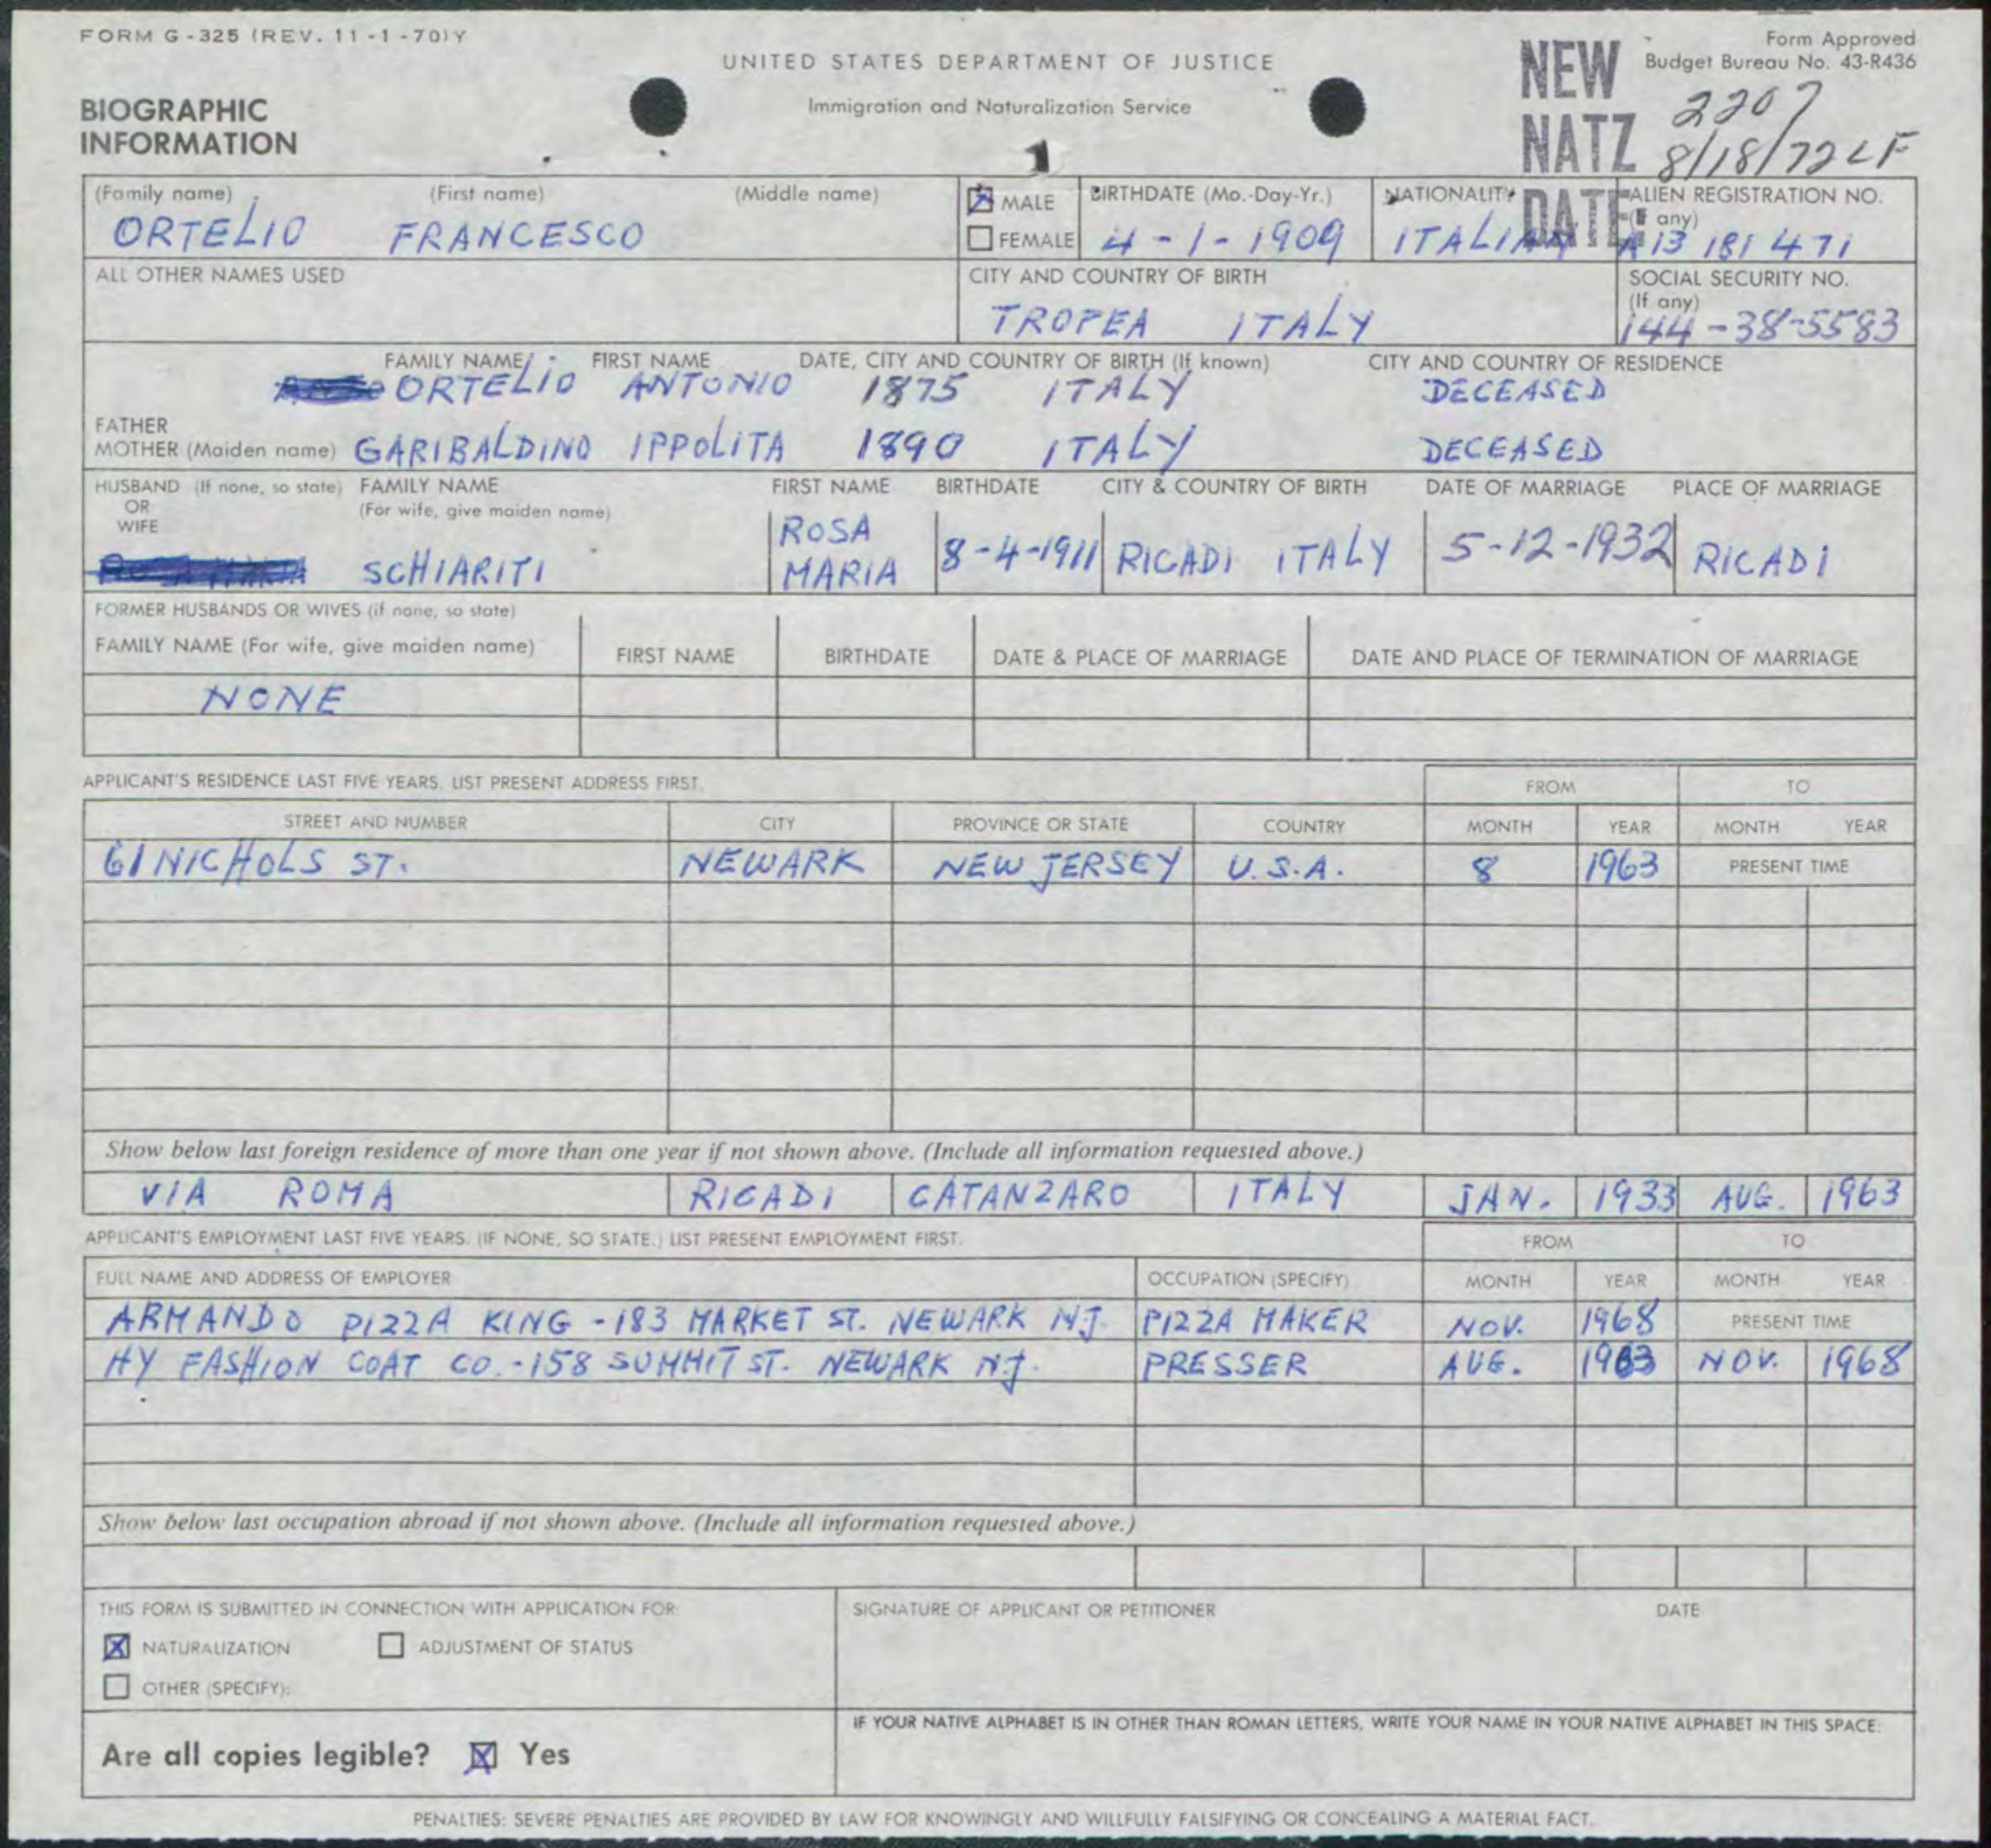 FORM G-325 (REV. 11-1-70)Y
UNITED STATES DEPARTMENT OF JUSTICE
Immigration and Naturalization Service
Form Approved
Budget Bureau No. 43-R436
BIOGRAPHIC
INFORMATION
NEW
NATZ
DATE:
2207
8/18/72 LF
1
(Family name) (First name) (Middle name)
ORTELIO FRANCESCO
MALE
FEMALE
BIRTHDATE (Mo.-Day-Yr.)
4-1-1909
NATIONALITY
ITALIAN
ALIEN REGISTRATION NO.
(If any)
A13 181 471
ALL OTHER NAMES USED
CITY AND COUNTRY OF BIRTH
TROPEA ITALY
SOCIAL SECURITY NO.
(If any)
144-38-5583
FAMILY NAME FIRST NAME DATE, CITY AND COUNTRY OF BIRTH (If known) CITY AND COUNTRY OF RESIDENCE
ORTELIO ANTONIO 1875 ITALY DECEASED
FATHER
MOTHER (Maiden name) GARIBALDINO IPPOLITA 1890 ITALY DECEASED
HUSBAND (If none, so state) FAMILY NAME FIRST NAME BIRTHDATE CITY & COUNTRY OF BIRTH DATE OF MARRIAGE PLACE OF MARRIAGE
OR
WIFE
(For wife, give maiden name)
SCHIARITI ROSA MARIA 8-4-1911 RICADI ITALY 5-12-1932 RICADI
FORMER HUSBANDS OR WIVES (if none, so state)
FAMILY NAME (For wife, give maiden name) FIRST NAME BIRTHDATE DATE & PLACE OF MARRIAGE DATE AND PLACE OF TERMINATION OF MARRIAGE
NONE
APPLICANT'S RESIDENCE LAST FIVE YEARS. LIST PRESENT ADDRESS FIRST. FROM TO
STREET AND NUMBER CITY PROVINCE OR STATE COUNTRY MONTH YEAR MONTH YEAR
61 NICHOLS ST. NEWARK NEW JERSEY U.S.A. 8 1963 PRESENT TIME
Show below last foreign residence of more than one year if not shown above. (Include all information requested above.)
VIA ROMA RICADI CATANZARO ITALY JAN. 1933 AUG. 1963
APPLICANT'S EMPLOYMENT LAST FIVE YEARS. (IF NONE, SO STATE.) LIST PRESENT EMPLOYMENT FIRST. FROM TO
FULL NAME AND ADDRESS OF EMPLOYER OCCUPATION (SPECIFY) MONTH YEAR MONTH YEAR
ARMANDO PIZZA KING - 183 MARKET ST. NEWARK N.J. PIZZA MAKER NOV. 1968 PRESENT TIME
HY FASHION COAT CO. - 158 SUMMIT ST. NEWARK N.J. PRESSER AUG. 1963 NOV. 1968
Show below last occupation abroad if not shown above. (Include all information requested above.)
THIS FORM IS SUBMITTED IN CONNECTION WITH APPLICATION FOR:
NATURALIZATION ADJUSTMENT OF STATUS
OTHER (SPECIFY):
SIGNATURE OF APPLICANT OR PETITIONER DATE
IF YOUR NATIVE ALPHABET IS IN OTHER THAN ROMAN LETTERS, WRITE YOUR NAME IN YOUR NATIVE ALPHABET IN THIS SPACE:
Are all copies legible? Yes
PENALTIES: SEVERE PENALTIES ARE PROVIDED BY LAW FOR KNOWINGLY AND WILLFULLY FALSIFYING OR CONCEALING A MATERIAL FACT.